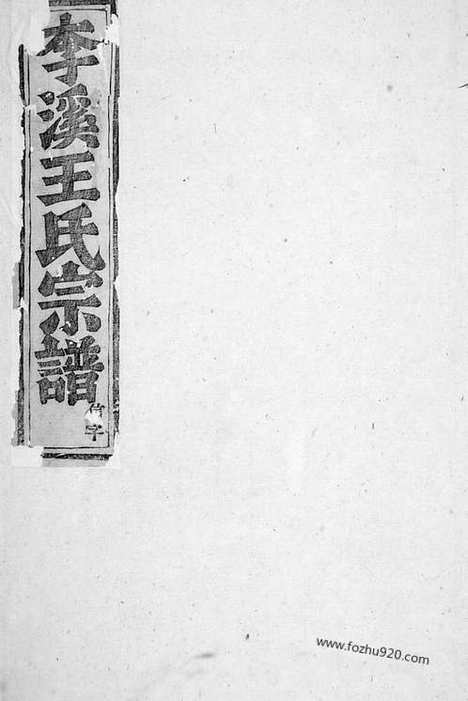 李溪王氏宗譜
www.fozhu920.com